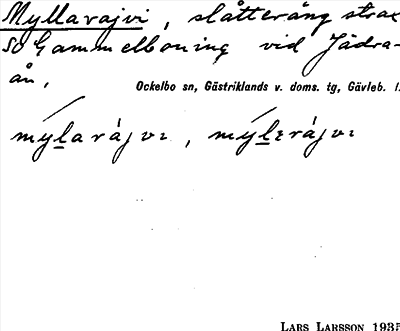 Myllarajvi, slåtteräng strax
SO Gammelboning vid Jädra-
ån.
Ockelbo sn, Gästriklands v. doms. tg, Gävleb. l.
LARS LARSSON 1935